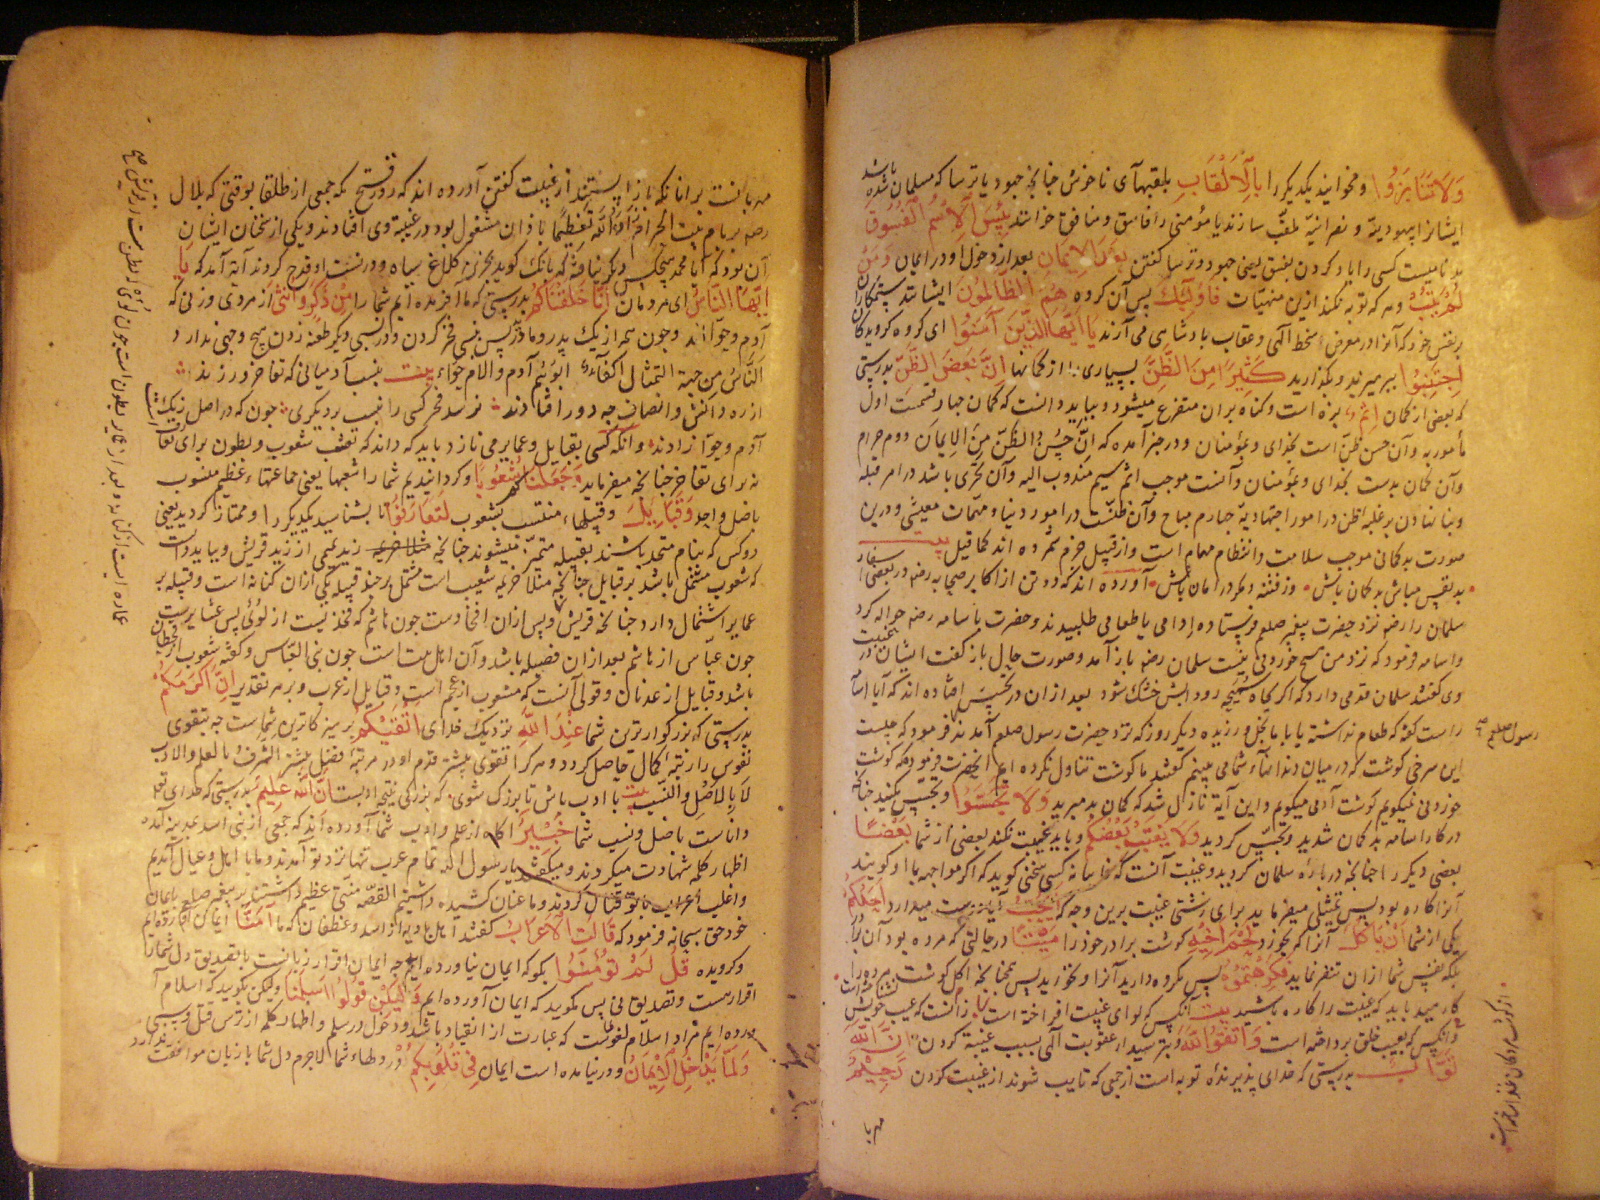 وَلَا تَنَابَزُوا و مخوانید یکدیکررا بِالْأَلْقَابِ بلقبهای ناخوش چنانچه جهود یا ترسا که مسلمان شده باشد
ایشانرا یهودیه و نصرانیه ملقب سازند یا مؤمنی را فاسق و منافق خوانند بِئْسَ الِاسْمُ الْفُسُوقُ
بد نامیست کسی را یاد کردن بفسق یعنی جهود و ترسا کفتن بَعْدَ الْإِيمَانِ بعد از دخول او در ایمان وَمَنْ
لَمْ يَتُبْ و هر که توبه نکند ازین منهیات فَأُولَئِكَ پس آن کروه هُمُ الظَّالِمُونَ ایشانند ستمکاران
بر نفس خود که آنرا در معرض سخط الهی و عقاب پادشاهی می آرند يَا أَيُّهَا الَّذِينَ آمَنُوا ای کروه کرویدکان
اجْتَنِبُوا بپرهیزید و بکذارید كَثِيرًا مِنَ الظَّنِّ بسیاری را از کمانها إِنَّ بَعْضَ الظَّنِّ بدرستی
که بعضی از کمان إِثْمٌ بزه است و کناه بران متفرع میشود و بباید دانست که کمان چهار قسمت اول
مأمور به و آن حسن ظن است بخدای و بمؤمنان و در خبر آمده که ان حسن الظن من الایمان دوم حرام
و آن کمان بدست بخدای و بمؤمنان و آنست موجب اثم سیم مندوب الیه و آن تحری باشد در امر قبله
و بنا نهادن بر غلبه ظن در امور اجتهادیه چهارم مباح و آن ظنست در امور دنیا و مهمات معیشی و درین
صورت بدکمانی موجب سلامت و انتظام مهام است و از قبیل حزم شمرده اند کما قیل بیت
بد نفس مباش بد کمان باش وز فتنه و مکر در امان باش آورده اند که دو تن از اکابر صحابه رضه در بعضی اسفار
سلمان را رضه نزد حضرت پیغمبر صلعم فرستاده ادامی یا طعامی طلبیدند و حضرت باسامه رضه حواله کرد
و اسامه فرمود که نزد من هیچ خوردنی نیست سلمان رضه باز آمد و صورت حال باز کفت ایشان در غیبت
وی کفتند سلمان قدمی دارد که اکر بچاه سمیحه رود آبش خشک شود بعد ازان در تجسس افتاده اند که آیا اسامه
راست کفته که طعام نداشته یا با ما بخل ورزیده دیکر روز که نزد حضرت رسول صلعم آمدند فرمود که چیست
این سرخی کوشت که در میان دندانهاء شما می بینم کفتند ما کوشت تناول نکرده ایم آنحضرت فرمود که کوشت
خوردنی نمیکویم کوشت آدمی میکویم و این آیة نازل شد که کمان بد مبرید وَلَا تَجَسَّسُوا و تجسس مکنید چنانکه
در کار اسامه بد کمان شدید و تجسس کردید وَلَا يَغْتَبْ بَعْضُكُمْ و باید که غیبت نکند بعضی از شما بَعْضًا
بعضی دیکر را چنانچه درباره سلمان کردید و غیبت آنست که غایبانه کسی سخنی کوید که اکر مواجهه با او کویند
آنرا کاره بود پس تمثیلی میفرماید برای زشتی غیبت برین وجه که أَيُحِبُّ آیا دوست میدارد أَحَدُكُمْ
یکی از شما أَنْ يَأْكُلَ آنرا که بخورد لَحْمَ أَخِيهِ کوشت برادر خود را مَيْتًا در حالتی که مرده بود
بلکه نفس شما ازان تنفر نماید فَكَرِهْتُمُوهُ پس مکروه دارید آنرا و نخورید پس همچنانچه اکل کوشت مرده را
کارهید باید که غیبت را کاره باشید بیت آنکس که لوای غیبت افراخته است
و آنکس که بعیب خلق پرداخته است وَاتَّقُوا اللَّهَ و بترسید از عقوبت الهی بسبب غیبة کردن إِنَّ اللَّهَ
تَوَّابٌ بدرستی که خدای پذیرنده توبه است از جمعی که تایب شوند از غیبت کردن رَحِيمٌ
مهربا
رسول صلعم
مهربانست برانانکه باز ایستند از غیبت کفتن آورده اند که در روز فتح مکه جمعی از طلقا بوقتی که بلال
رضه بر بام بیت الحرام زاده الله تعظیما باذان مشغول بود در غیبت وی افتادند و یکی از سخنان ایشان
آن بود که آیا محمد هیچکس دیکر نیافته که بانک کوید بجز این کلاغ سیاه و در نسبت او قدح کردند آیة آمد که يَا
أَيُّهَا النَّاسُ ای مردمان إِنَّا خَلَقْنَاكُمْ بدرستی که ما آفریده ایم شما را مِنْ ذَكَرٍ وَأُنْثَى از مردی و زنی که
آدم و حوااند و چون همه از یک پدر و مادرید پس بنسبی فخر کردن و در نسبی دیکر طعنه زدن هیچ وجهی ندارد
الناس من جهة التمثال اکفاء ابوهم آدم و الام حواء بیت بنسب آدمیانی که تفاخر ورزند
از ره دانش و انصاف چه دور افتادند نرسد فخر کسی را بنسب بر دیکری چون که در اصل ز یک
آدم و حوا زادند و آنکه کسی بقبایل و عمایر می نازد باید که داند که تعقب شعوب و بطون برای تعارفست
نه برای تفاخر چنانچه میفرماید وَجَعَلْنَاكُمْ شُعُوبًا و کردانیدیم شما را شعبها یعنی جماعتهاء عظیم منسوب
باصل واحد وَقَبَائِلَ و قبیلها منتسب بشعوب لِتَعَارَفُوا تا بشناسید یکدیکررا و ممتاز کردید یعنی
دو کس که بنام متحد باشند بقبیله متمیز میشوند چنانچه زید تمیمی از زید قریشی و بباید دانست
که شعوب مشتمل باشد بر قبایل چنانچه مثلا خزیمه شعبیست مشتمل بر چند قبیله یکی ازان کنانه است و قبیله بر
عمایر اشتمال دارد چنانچه قریش و پس ازان افخاذست چون هاشم که فخذیست از لؤی پس عشایرست
چون عباس از هاشم بعد ازان فصیله باشد و آن اهل بیت است چون بنی العباس و کفته اند شعوب از قحطان
باشد و قبایل از عدنان و قولی آنست که شعوب از عجم است و قبایل از عرب و بر هر تقدیر إِنَّ أَكْرَمَكُمْ
بدرستی که بزرکوارترین شما عِنْدَ اللَّهِ نزدیک خدای أَتْقَاكُمْ پرهیزکارترین شماست چه بتقوی
نفوس را رتبه کمال حاصل کردد و هر کرا تقوی بیشتر قدم او در مرتبه فضل پیشتر الشرف بالعلم و الادب
لا بالاصل و النسب بیت با ادب باش تا بزرک شوی که بزرکی نتیجه ادبست إِنَّ اللَّهَ عَلِيمٌ بدرستی که خدای تعالی
داناست باصل و نسب شما خَبِيرٌ آکاه از علم و ادب شما آورده اند که جمعی از بنی اسد بمدینه آمده
اظهار کلمه شهادت میکردند و میکفتند یا رسول الله تمام عرب تنها نزد تو آمدند و ما با اهل و عیال آمدیم
و اغلب اعراب با تو قتال کردند و ما عنان کشیده داشتیم القصه منتی عظیم داشتند بر پیغمبر صلعم بایمان
خود حق سبحانه فرمود که قَالَتِ الْأَعْرَابُ کفتند اهل بادیه از اسد و غطفان که ما آمَنَّا ایمان آورده ایم
و کرویده قُلْ لَمْ تُؤْمِنُوا بکو که ایمان نیاورده اید چه ایمان اقرار زبانست با تصدیق دل شمارا
اقرارهست و تصدیق نی پس مکویید که ایمان آورده ایم وَلَكِنْ قُولُوا أَسْلَمْنَا ولیکن بکویید که اسلام آ
ورده ایم مراد اسلام لغویست که عبارت از انقیاد باشد و دخول در سلم و اظهار کلمه از ترس قتل و سبی
وَلَمَّا يَدْخُلِ الْإِيمَانُ و در نیامده است ایمان فِي قُلُوبِكُمْ در دلهاء شما لاجرم دل شما با زبان موافقت ندارد